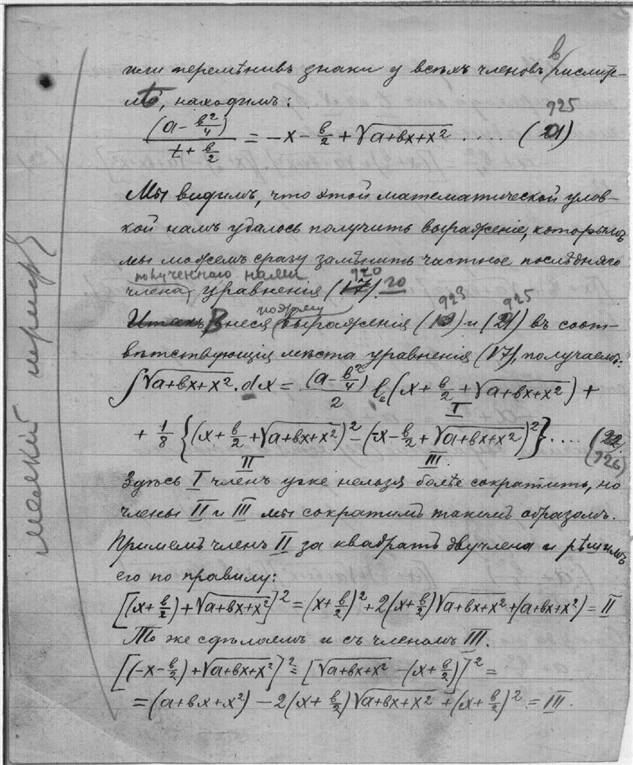 или перемѣнивъ знаки у всѣхъ членовъ в числит-
лѣ, находимъ:
925
(a - в²/4) / (t + в/2) = -x - в/2 + √(a+вx+x²) .... (21)
Мы видимъ, что этой математической улов-
кой намъ удалось получить выраженіе, которымъ
мы можемъ сразу замѣнить частное послѣдняго
полученнаго нами 920
члена, уравненія (17). 20
подъему 923 925
Итакъ Внеся выраженія (19) и (21) въ соот-
вѣтствующія мѣста уравненія (17), получаемъ:
∫√(a+вx+x²).dx = (a - в²/4)/2 ℓe(x + в/2 + √(a+вx+x²)) +
I
+ 1/8 {(x + в/2 + √(a+вx+x²))² - (-x - в/2 + √(a+вx+x²))²} .... (22
II III (926)
Здѣсь I членъ уже нельзя болѣе сократить, но
члены II и III мы сократимъ такимъ образомъ.
Примемъ членъ II за квадратъ двучлена и рѣшимъ
его по правилу:
[(x + в/2) + √(a+вx+x²)]² = (x + в/2)² + 2(x + в/2)√(a+вx+x²) + (a+вx+x²) = II
То же сдѣлаемъ и съ членомъ III.
[(-x - в/2) + √(a+вx+x²)]² = [√(a+вx+x²) - (x + в/2)]² =
= (a+вx+x²) - 2(x + в/2)√(a+вx+x²) + (x + в/2)² = III.
мелкій шрифт